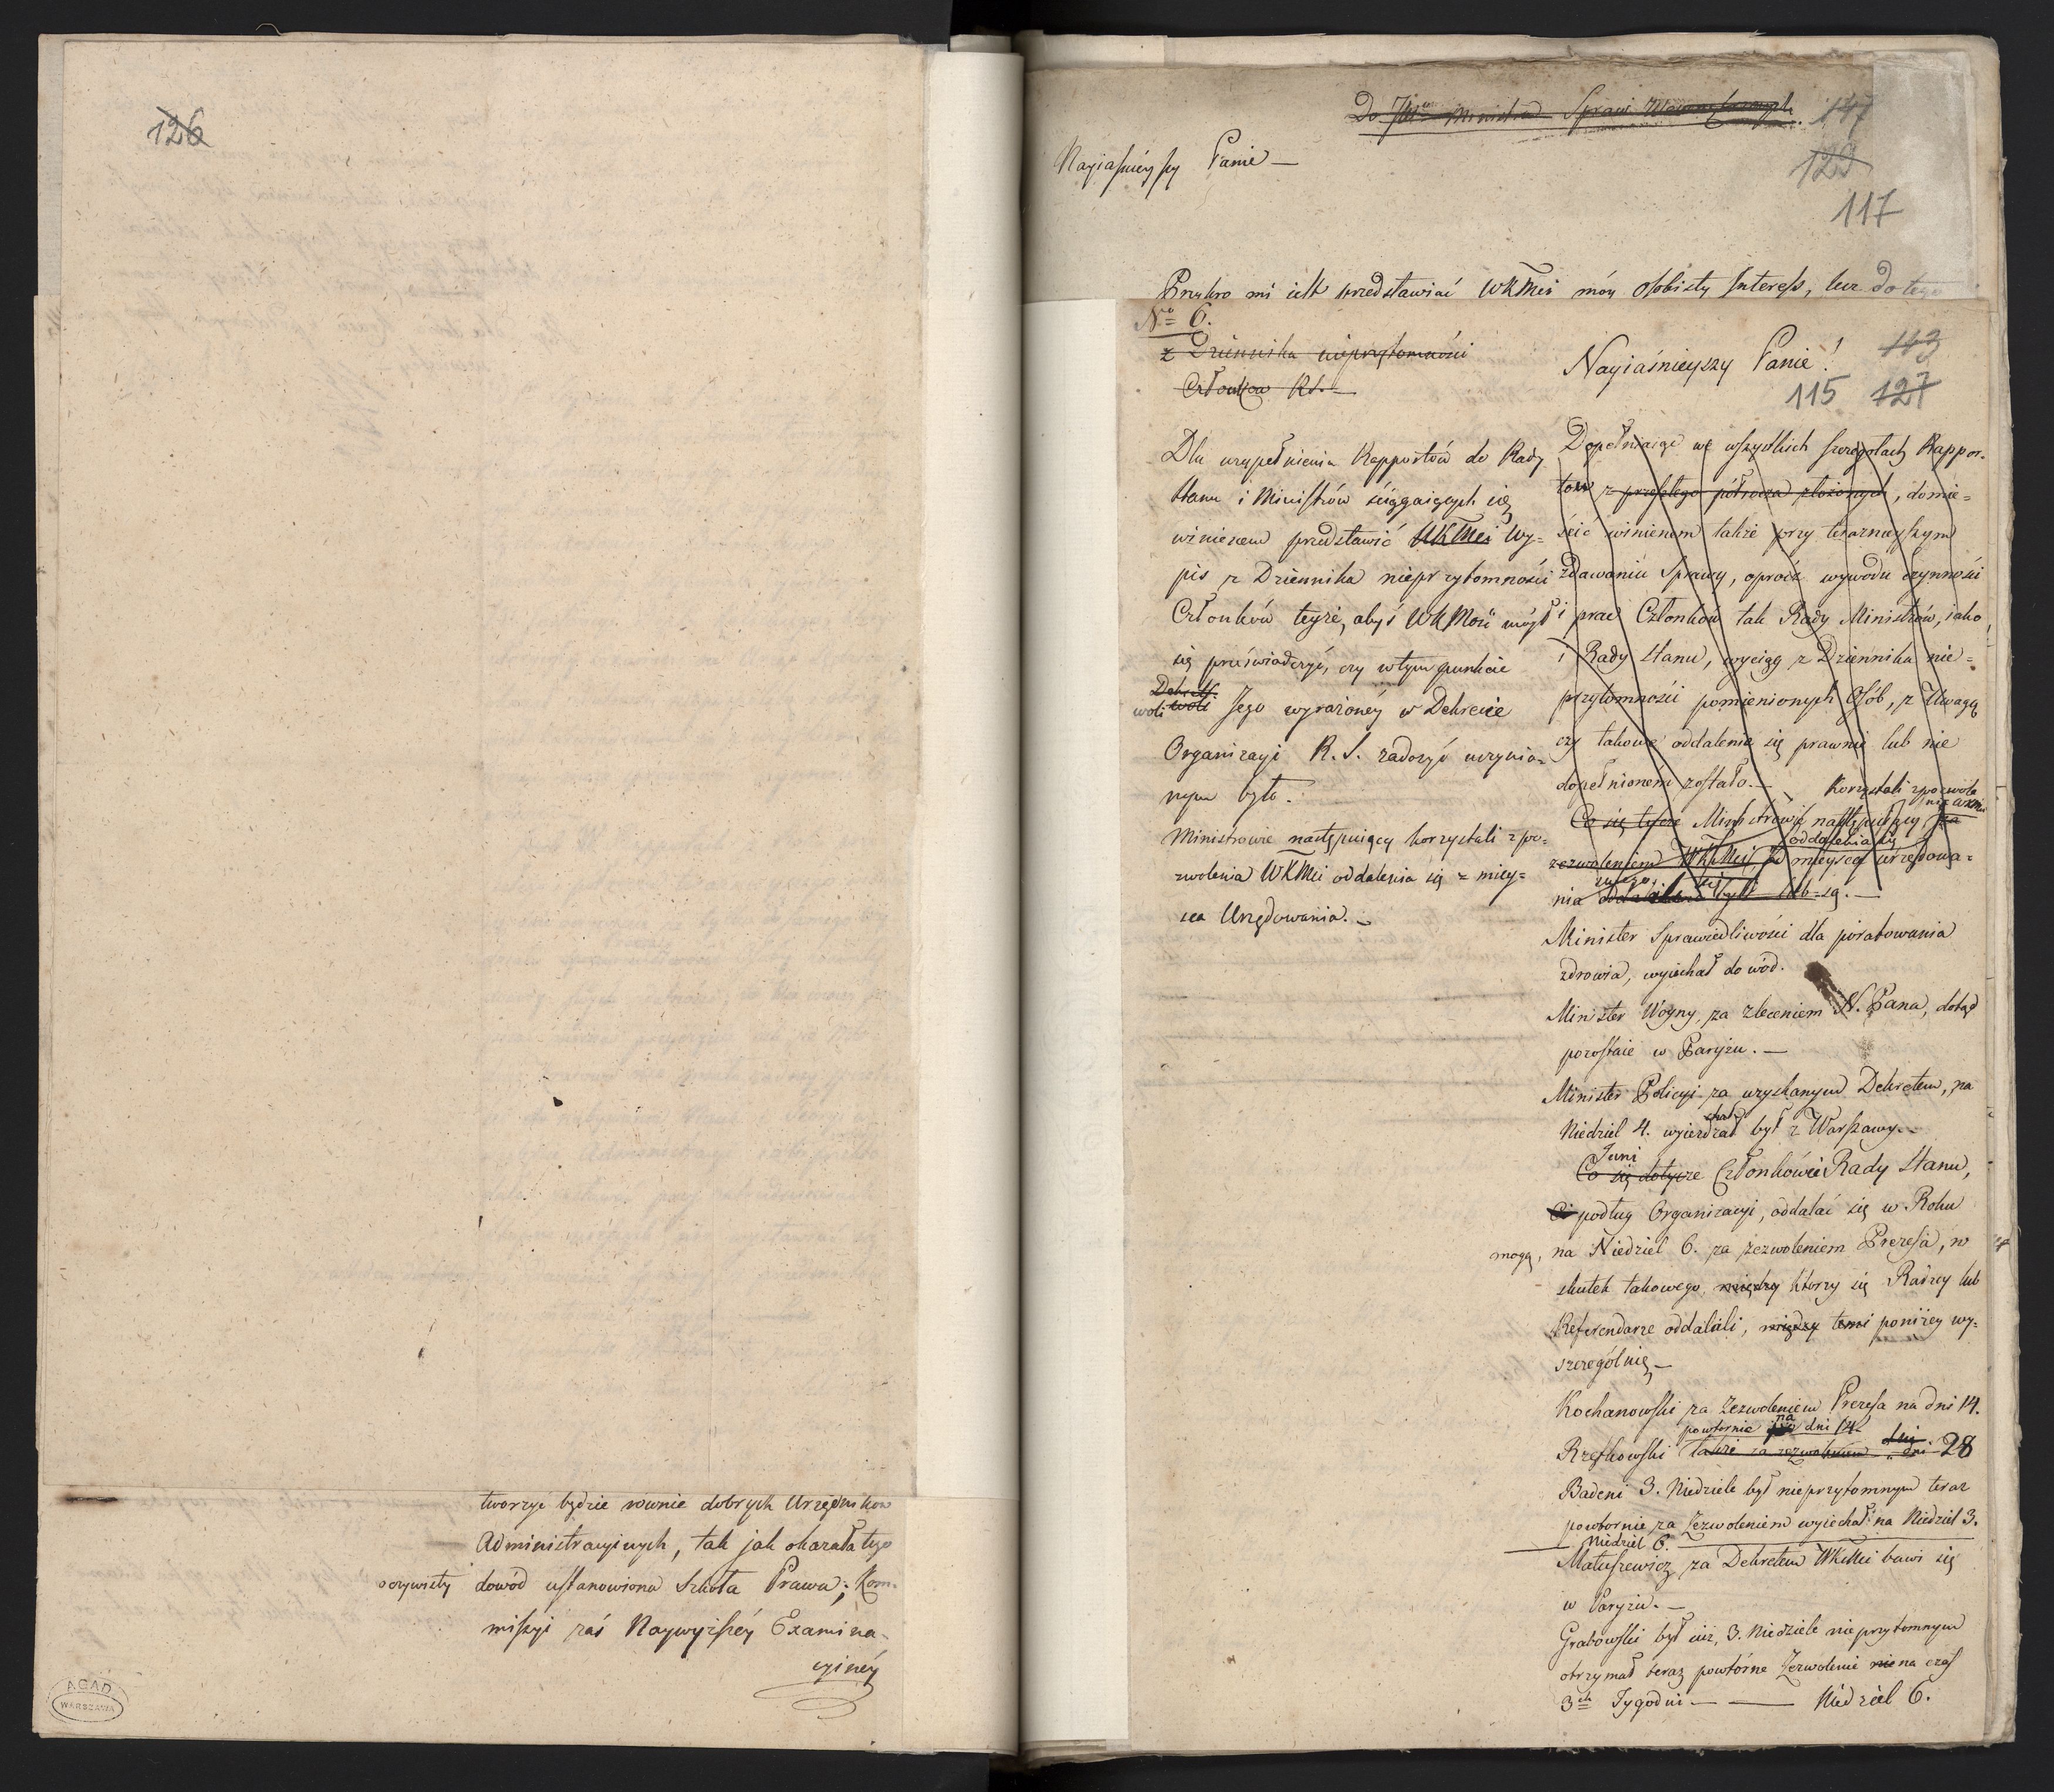 126
tworzyć będzie równie dobrych Urzędników
Administracyinych, tak jak okazała tego
oczywisty dowód ustanowiona Szkoła Prawa; Kom-
missyi zaś Naywyższéy Examina-
cyinéy
AGAD
WARSZAWA
Do JW Ministra Spraw Wewnętrznych. 147
129
117
Nayiaśnieyszy Panie —
Przykro mi iest przedstawiać WKMci móy osobisty Interess, lecz do tego
No 6.
z Dziennika nieprzytomności
Członków RS. —
Dla uzupełnienia Rapportów do Rady
Stanu i Ministrów ściągaiących się
winienem przedstawić WKMci Wy-
pis z Dziennika nieprzytomności
Członków teyże, abyś WKMość mógł
się przeświadczyć, czy w tym punkcie
woli woli Jego wyrażonéy w Dekrecie
Organizacyi R. S. zadosyć uczynio-
nym było.
Ministrowie następuiący korzystali z po-
zwolenia WKMci oddalenia się z miey-
sca Urzędowania. —
Nayiaśnieyszy Panie! 113
115 127
Dopełniaiąc we wszystkich szczegółach Rappor-
tow z przeszłego półrocza złożonych, domie-
ścić winienem także przy teraznieyszym
zdawaniu Sprawy, oprócz wywodu czynności
i prac Członków tak Rady Ministrów, iako
i Rady Stanu, wyciąg z Dziennika nie-
przytomności pomienionych Osób, z Uwagą
czy takowe oddalenie się prawnie lub nie
dopełnionem zostało. — Korzystali z pozwole
Co się tycze Ministrów następuiący za
oddalenia się
zezwoleniem WKMci z mieysca urzędowa-
nia
Minister Sprawiedliwości dla poratowania
zdrowia, wyiechał do wód.
Minister Woyny, za zleceniem N. Pana, dotąd
pozostaie w Paryżu. —
Minister Policyi za uzyskanym Dekretem, na
Niedziel 4. wyieżdżał był z Warszawy. —
Co się dotycze Członkówie Rady Stanu,
Ci podług Organizacyi, oddalać się w Roku
mogą, na Niedziel 6. za zezwoleniem Prezesa, w
skutek takowego, między ktorzy się Radzcy lub
Referendarze oddalali, między temi poniżey wy-
szczególnię —
Kochanowski za Zezwoleniem Prezesa na dni 14.
powtornie na dni 14
Rzętkowski także za zezwoleniem dni 28
Badeni 3. Niedziele był nieprzytomnym teraz
powtornie za Zezwoleniem wyiechał na Niedziel 3.
Niedziel 6.
Matuszewicz za Dekretem WKMci bawi się
w Paryżu. —
Grabowski był iuż, 3. Niedziele nieprzytomnym
otrzymał teraz powtórne Zezwolenie na czas
3ch Tygodni — — Niedziel 6.